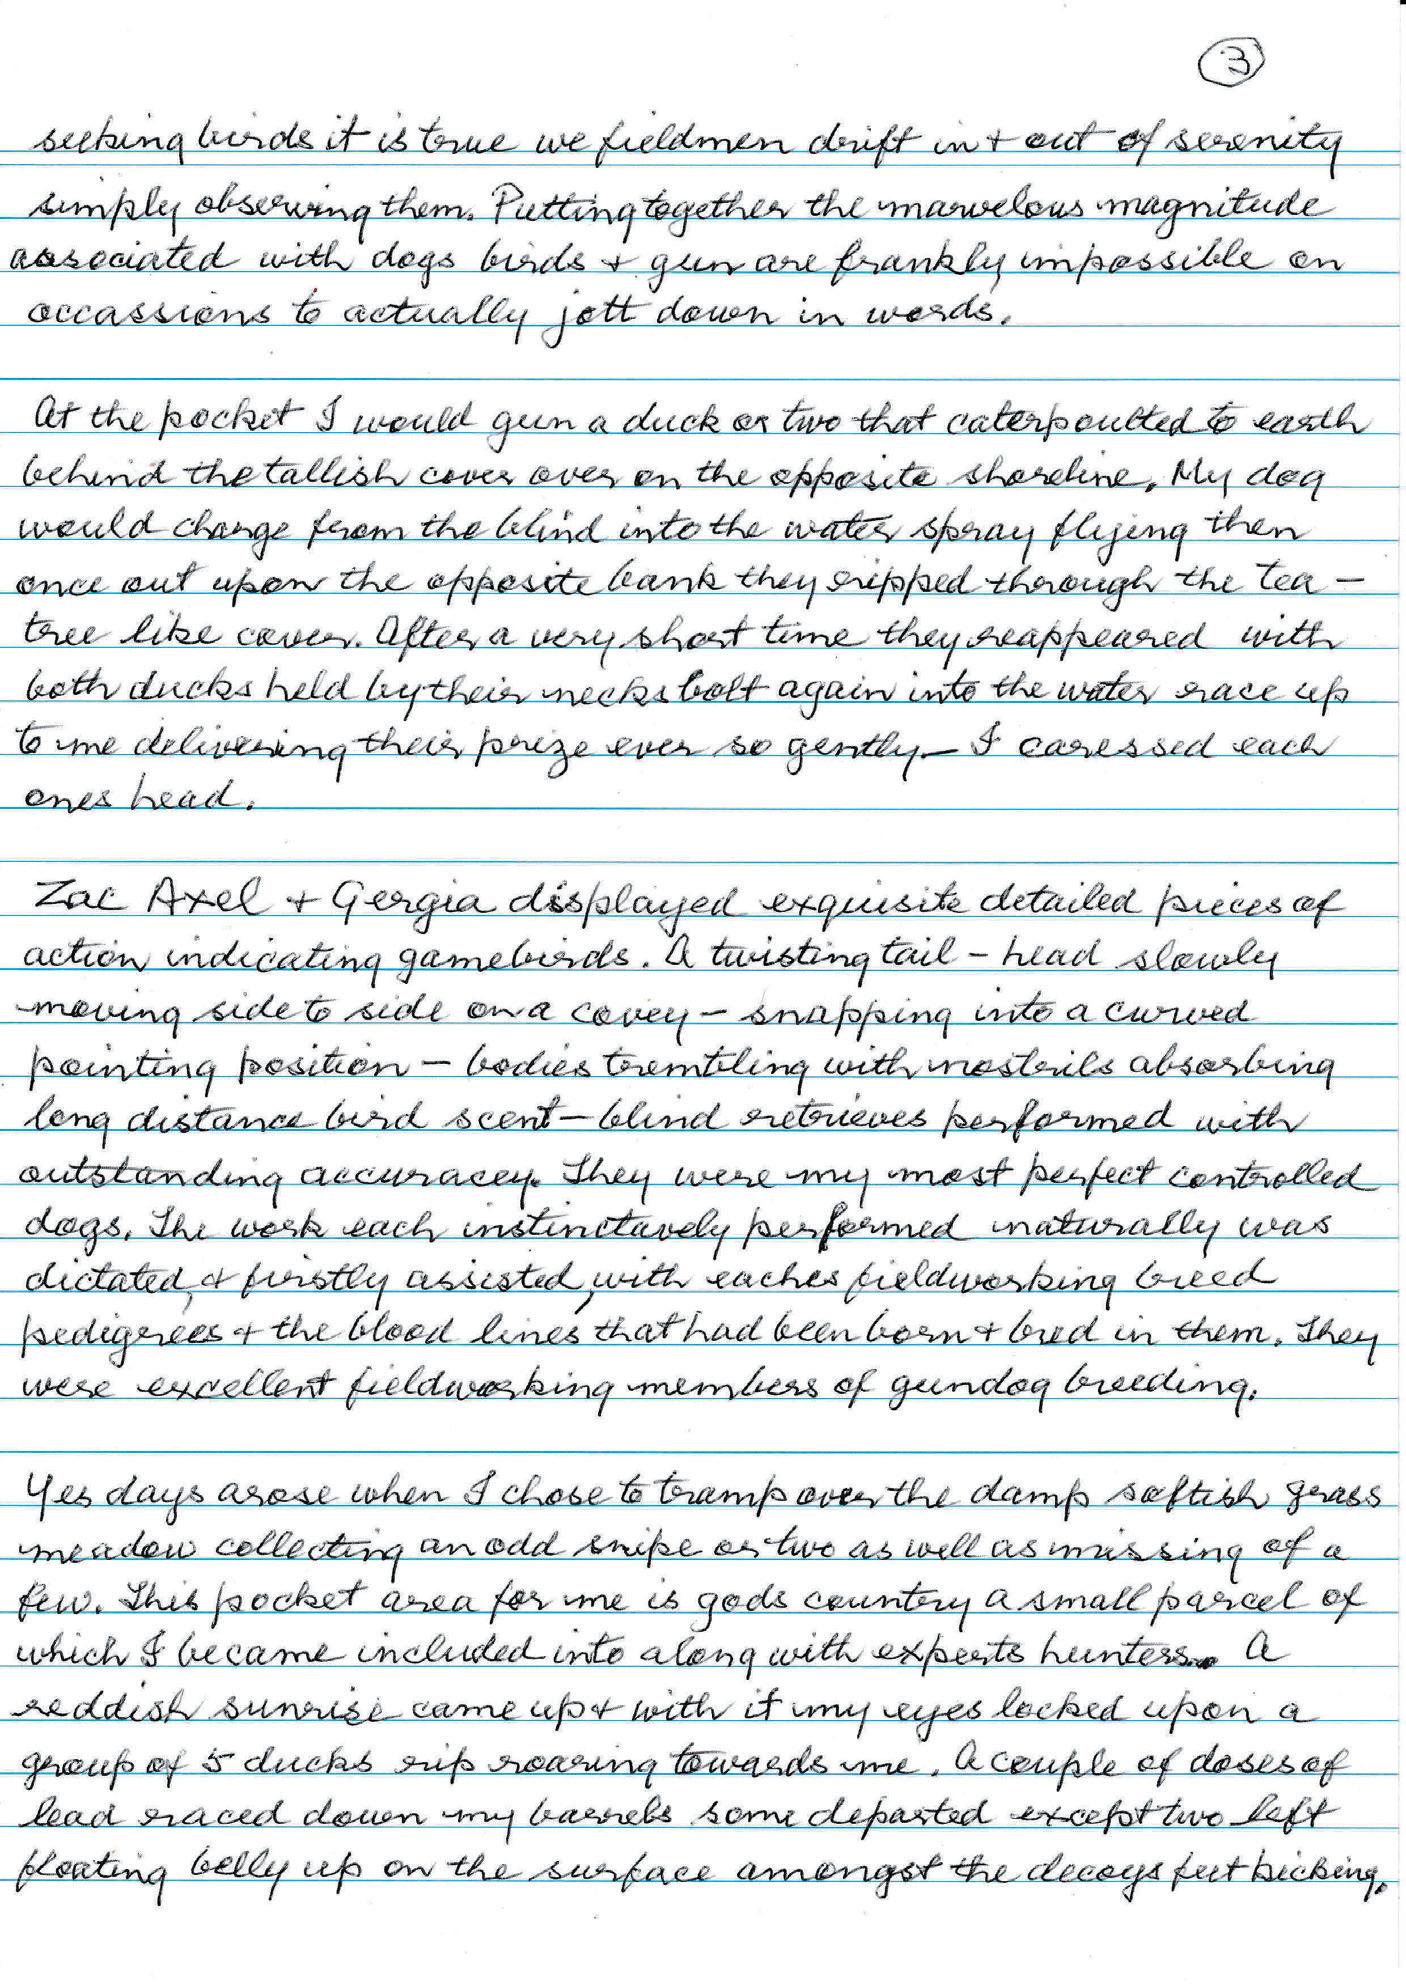 3
seeking birds it is true we fieldmen drift in + out of serenity
simply observing them. Putting together the marvelous magnitude
associated with dogs birds + gun are frankly impossible on
occassions to actually jott down in words.
At the pocket I would gun a duck or two that caterpoulted to earth
behind the tallish cover over on the opposite shoreline. My dog
would charge from the blind into the water spray flying then
once out upon the opposite bank they ripped through the tea -
tree like cover. After a very short time they reappeared with
both ducks held by their necks bolt again into the water race up
to me delivering their prize ever so gently - I caressed each
ones head.
Zac Axel + Gergia displayed exquisite detailed pieces of
action indicating gamebirds. A twisting tail - head slowly
moving side to side on a covey - snapping into a curved
pointing position - bodies trembling with nostrils absorbing
long distance bird scent - blind retrieves performed with
outstanding accuracey. They were my most perfect controlled
dogs. The work each instinctavely performed naturally was
dictated, + firstly assisted, with eaches fieldworking breed
pedigrees + the blood lines that had been born + bred in them. They
were excellent fieldworking members of gundog breeding.
Yes days arose when I chose to tramp over the damp softish grass
meadow collecting an odd snipe or two as well as missing of a
few. This pocket area for me is gods country a small parcel of
which I became included into along with experts hunters. A
reddish sunrise came up + with it my eyes locked upon a
group of 5 ducks rip roaring towards me. A couple of doses of
lead raced down my barrels some departed except two left
floating belly up on the surface amongst the decoys feet kicking.